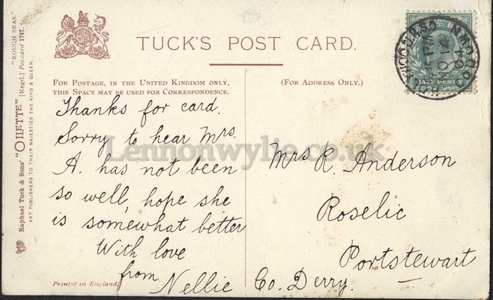 TUCK'S POST CARD.
FOR POSTAGE, IN THE UNITED KINGDOM ONLY,
THIS SPACE MAY BE USED FOR CORRESPONDENCE.
(FOR ADDRESS ONLY.)
Thanks for card.
Sorry to hear Mrs.
A. has not been
so well, hope she
is somewhat better
With love
from Nellie
Mrs R. Anderson
Roselic
Portstewart
Co. Derry.
Printed in England.
Raphael Tuck & Sons' "OILETTE" [Regd.] Postcard 1787. "ROUGH SEAS."
ART PUBLISHERS TO THEIR MAJESTIES THE KING & QUEEN.
Lennonwylie.co.uk